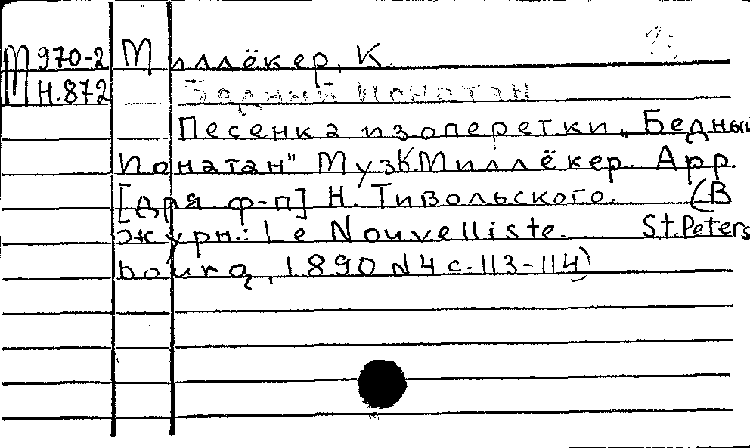 М 970-2 Миллёкер, К.
М Н.872 Бедный Ионатан
Песенка из оперетки „Бедный
Ионатан" Муз К Миллёкер. Арр.
[для ф-п] Н. Тивольского. (В
журн.: Le Nouvelliste. St.Peters
bourg, 1890 N4 с.113-114)